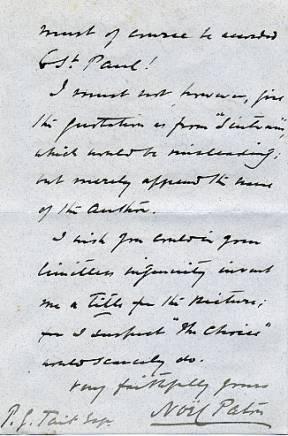 must of course be accorded
to St. Paul!
I must not, however, give
the quotation as from "Sintram",
which would be misleading;
but merely append the name
of the Author.
I wish you could in your
limitless ingenuity invent
me a title for the Picture;
for I suspect "The Choice"
would scarcely do.
Very faithfully yours
Noël Paton
P. G. Tait Esqr.